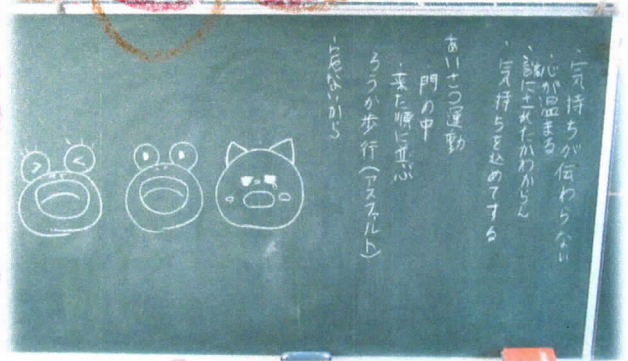 ・気持ちが伝わらない
心が温まる
・誰にされたかわからん
・気持ちを込めてする
あいさつ運動
門の中
・来た順に並ぶ
ろうか歩行(アスファルト)
・危ないから